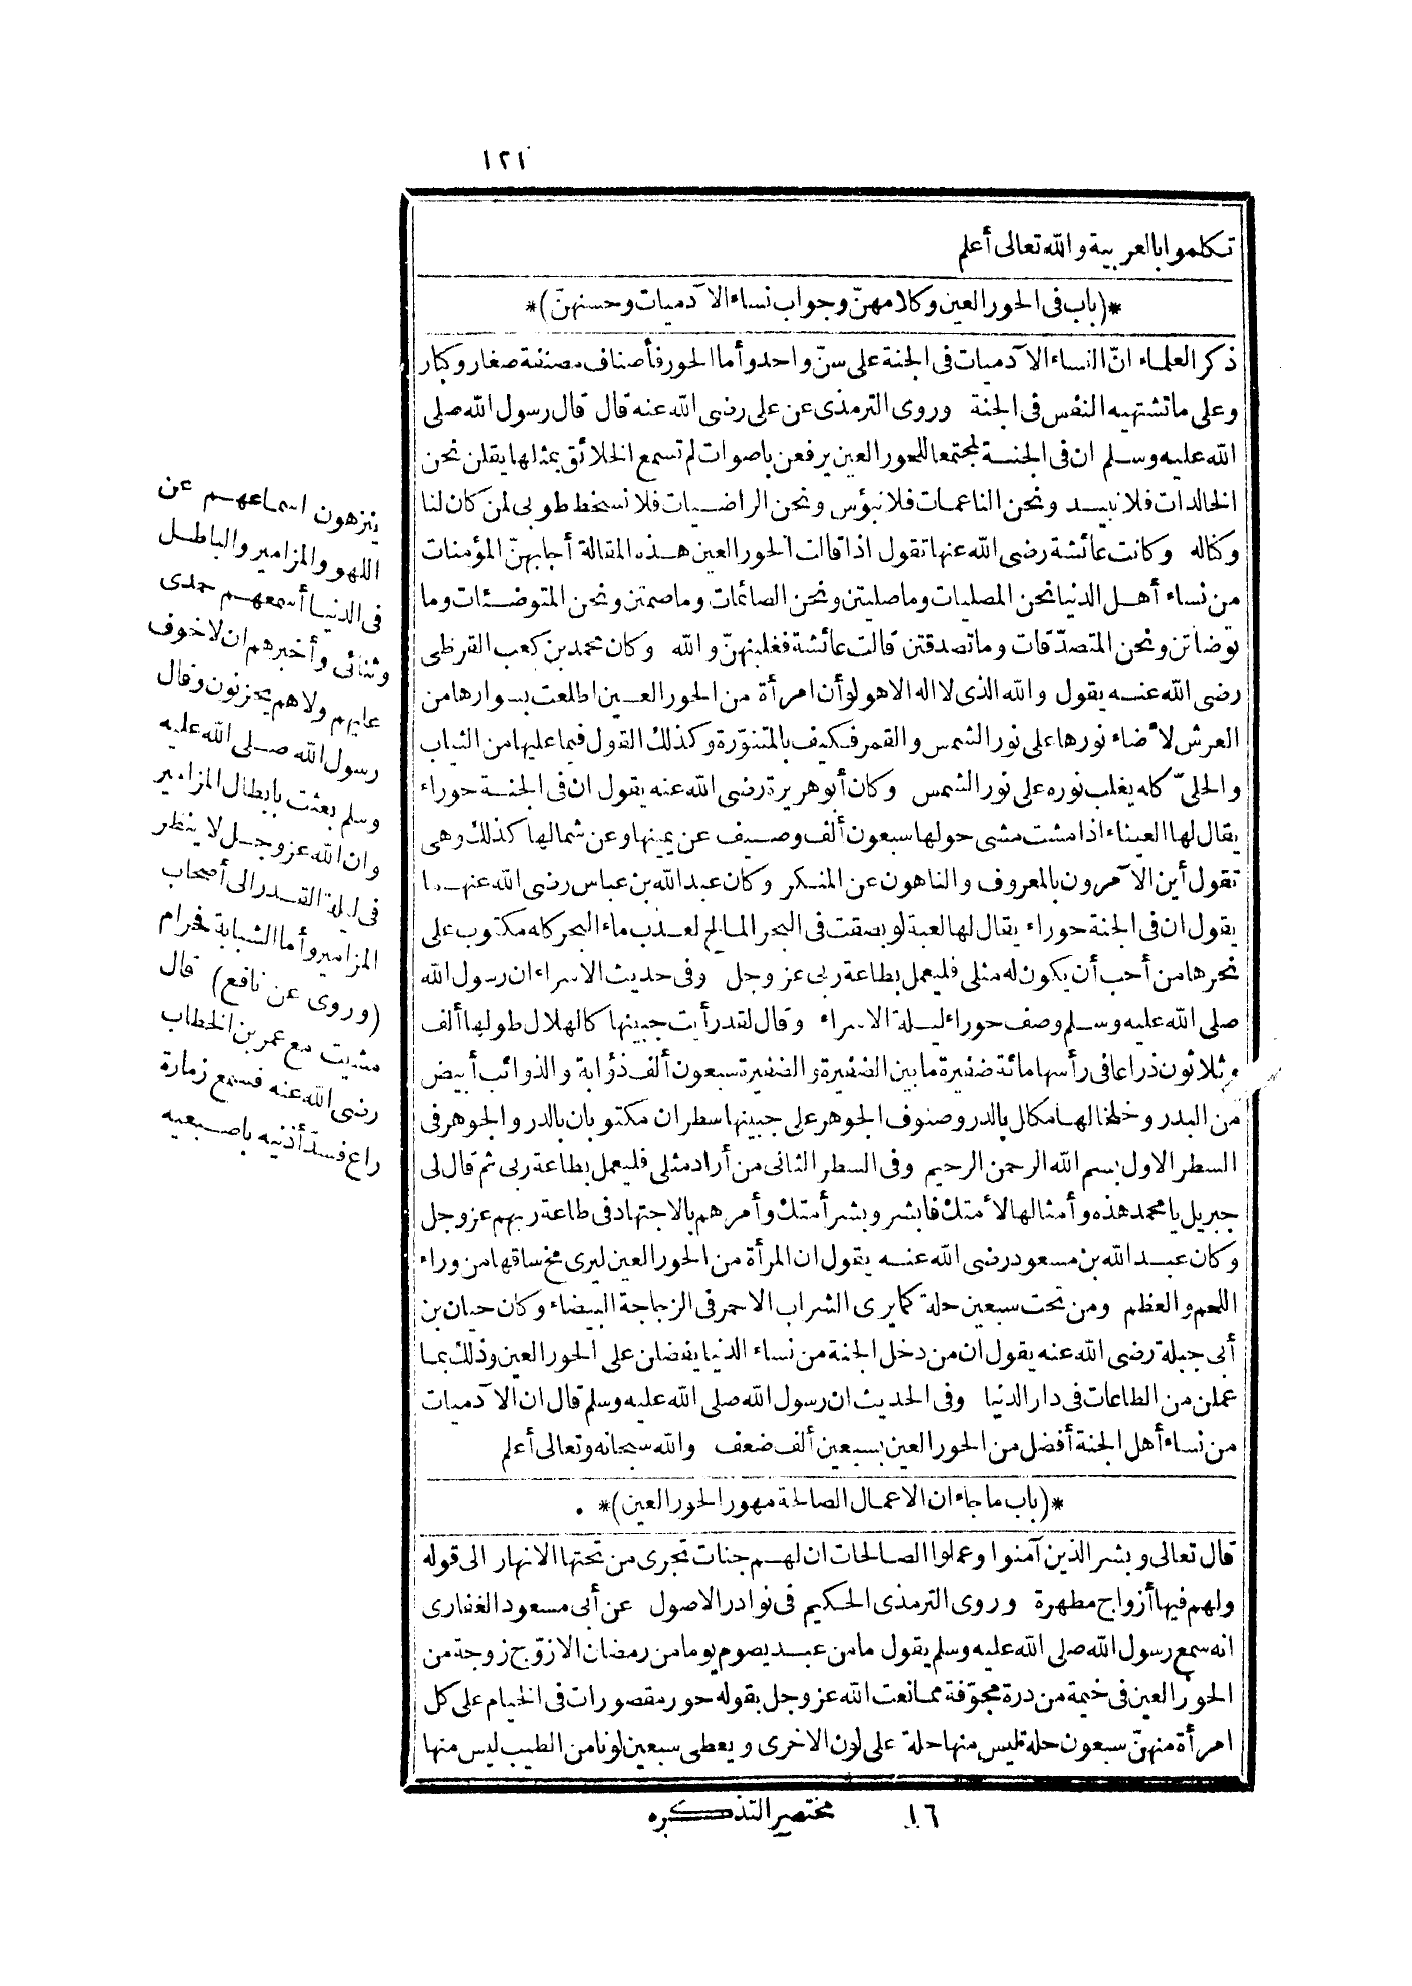 ١٢١
تكلموا بالعربية والله تعالى أعلم
*(باب فى الحور العين وكلامهنّ وجواب نساء الآدميات وحسنهنّ)*
ذكر العلماء انّ النساء الآدميات فى الجنة على سنّ واحد وأما الحور فأصناف مصنفة صغار وكبار
وعلى ما تشتهيه النفس فى الجنة وروى الترمذى عن على رضى الله عنه قال قال رسول الله صلى
الله عليه وسلم ان فى الجنة لمجتمعا للحور العين يرفعن باصوات لم تسمع الخلائق بمثلها يقلن نحن
الخالدات فلا نبيد ونحن الناعمات فلا نبؤس ونحن الراضيات فلا نسخط طوبى لمن كان لنا
وكناله وكانت عائشة رضى الله عنها تقول اذا قالت الحور العين هذه المقالة أجابهنّ المؤمنات
من نساء أهل الدنيا نحن المصليات وما صليتن ونحن الصائمات وما صمتن ونحن المتوضئات وما
توضأتن ونحن المتصدّقات وما تصدقتن قالت عائشة فغلبنهنّ والله وكان محمد بن كعب القرظى
رضى الله عنه يقول والله الذى لا اله الا هو لو أن امرأة من الحور العين اطلعت بسوارها من
العرش لأضاء نورها على نور الشمس والقمر فكيف بالمتنوّرة وكذلك القول فيما عليها من الثياب
والحلىّ كله يغلب نوره على نور الشمس وكان أبو هريرة رضى الله عنه يقول ان فى الجنة حوراء
يقال لها العيناء اذا مشت مشى حولها سبعون ألف وصيف عن يمينها وعن شمالها كذلك وهى
تقول أين الآمرون بالمعروف والناهون عن المنكر وكان عبد الله بن عباس رضى الله عنهما
يقول ان فى الجنة حوراء يقال لها لعبة لو بصقت فى البحر المالح لعذب ماء البحر كله مكتوب على
نحرها من أحب أن يكون له مثلى فليعمل بطاعة ربى عز وجل وفى حديث الاسراء ان رسول الله
صلى الله عليه وسلم وصف حوراء ليلة الاسراء وقال لقد رأيت جبينها كالهلال طولها ألف
وثلاثون ذراعا فى رأسها مائة ضفيرة ما بين الضفيرة والضفيرة سبعون ألف ذؤابة والذوائب أبيض
من البدر وخلخالها مكال بالدر وصنوف الجوهر على جبينها سطران مكتوبان بالدر والجوهر فى
السطر الاول بسم الله الرحمن الرحيم وفى السطر الثانى من أراد مثلى فليعمل بطاعة ربى ثم قال لى
جبريل يا محمد هذه وأمثالها لأمتك فابشر وبشر أمتك وأمرهم بالاجتهاد فى طاعة ربهم عز وجل
وكان عبد الله بن مسعود رضى الله عنه يقول ان المرأة من الحور العين ليرى مخ ساقها من وراء
اللحم والعظم ومن تحت سبعين حلة كما يرى الشراب الاحمر فى الزجاجة البيضاء وكان حيان بن
أبى جبلة رضى الله عنه يقول ان من دخل الجنة من نساء الدنيا يفضلن على الحور العين وذلك بما
عملن من الطاعات فى دار الدنيا وفى الحديث ان رسول الله صلى الله عليه وسلم قال ان الآدميات
من نساء أهل الجنة أفضل من الحور العين بسبعين ألف ضعف والله سبحانه وتعالى أعلم
*(باب ما جاء ان الاعمال الصالحة مهور الحور العين)*
قال تعالى وبشر الذين آمنوا وعملوا الصالحات ان لهم جنات تجرى من تحتها الانهار الى قوله
ولهم فيها أزواج مطهرة وروى الترمذى الحكيم فى نوادر الاصول عن أبى مسعود الغفارى
انه سمع رسول الله صلى الله عليه وسلم يقول ما من عبد يصوم يوما من رمضان الا زوّج زوجة من
الحور العين فى خيمة من درة مجوّفة مما نعت الله عز وجل بقوله حور مقصورات فى الخيام على كل
امرأة منهنّ سبعون حلة ليس منها حلة على لون الاخرى ويعطى سبعين لونا من الطيب ليس منها
١٦ مختصر التذكره
ينزهون اسماعهم عن
اللهو والمزامير والباطل
فى الدنيا أسمعهم حمدى
وثنائى وأخبرهم ان لا خوف
عليهم ولا هم يحزنون وقال
رسول الله صلى الله عليه
وسلم بعثت بابطال المزامير
وان الله عز وجل لا ينظر
فى ليلة القدر الى أصحاب
المزامير وأما الشبابة فحرام
(وروى عن نافع) قال
مشيت مع عمر بن الخطاب
رضى الله عنه فسمع زمارة
راع فسدّ أذنيه باصبعيه